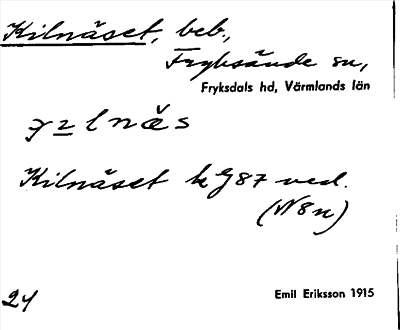 Kilnäset, beb.,
Fryksände sn,
Fryksdals hd, Värmlands län
Kilnäset k G87 ved.
(N8n)
24
Emil Eriksson 1915